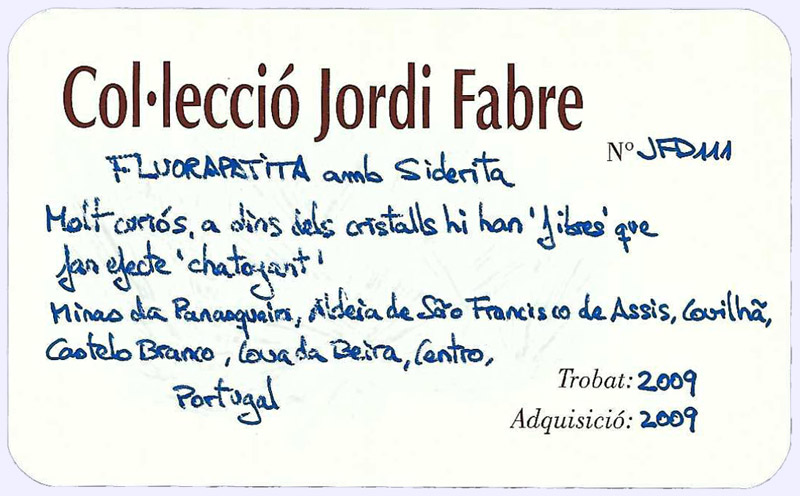 Col·lecció Jordi Fabre
Nº JFD111
FLUORAPATITA amb Siderita
Molt curiós, a dins dels cristalls hi han 'fibres' que
fan efecte 'chatoyant'
Minas da Panasqueira, Aldeia de São Francisco de Assis, Covilhã,
Castelo Branco, Cova da Beira, Centro,
Portugal
Trobat: 2009
Adquisició: 2009